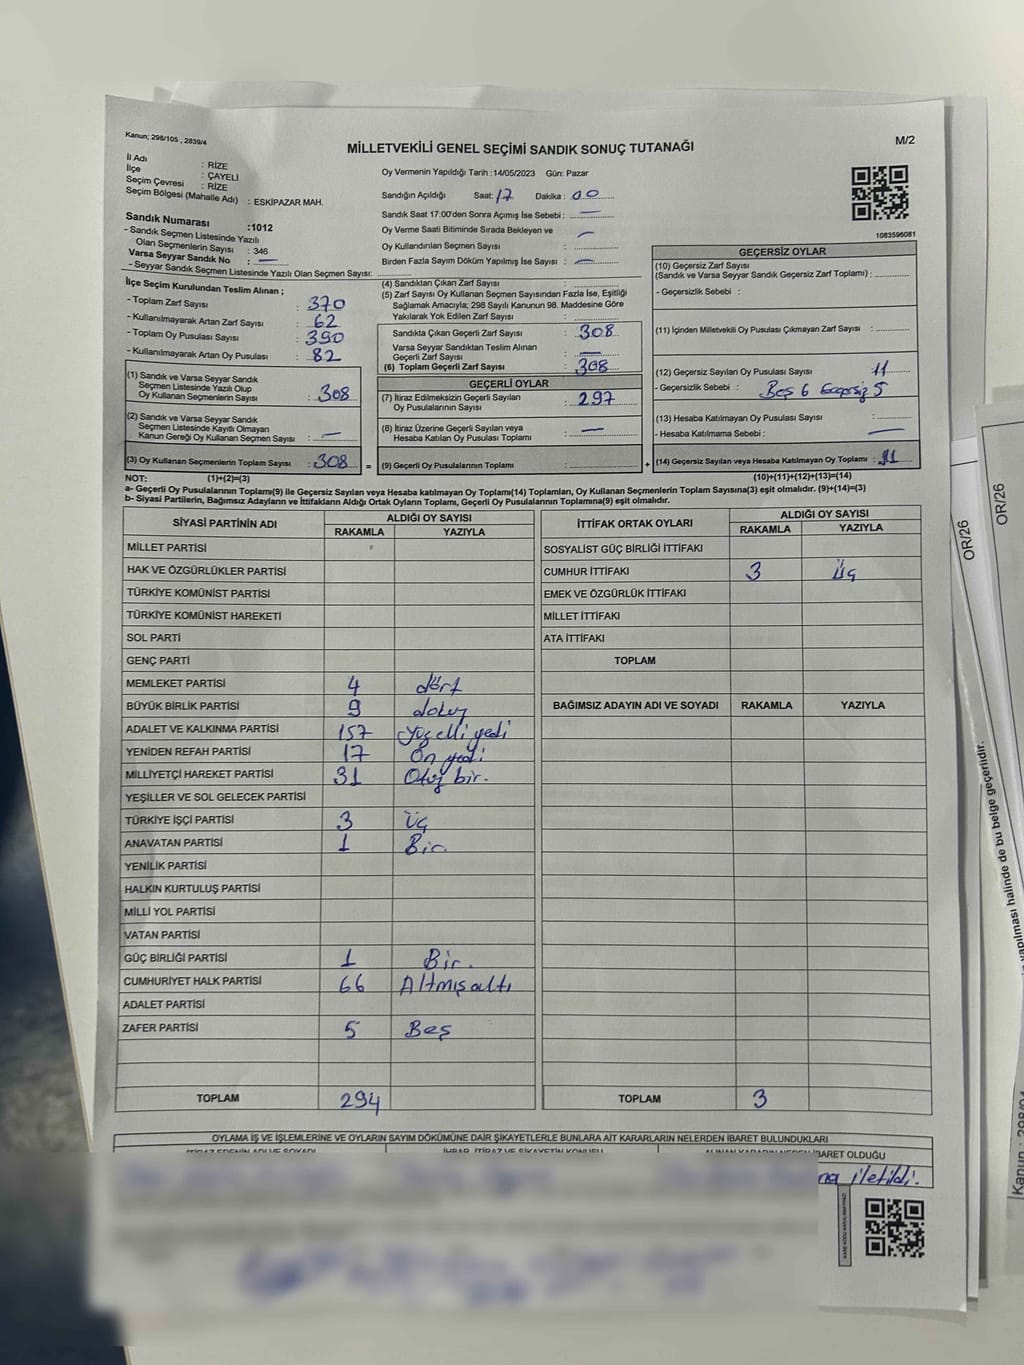 Kanun; 298/105 , 2839/4
M/2
MİLLETVEKİLİ GENEL SEÇİMİ SANDIK SONUÇ TUTANAĞI
İl Adı : RİZE
İlçe : ÇAYELİ
Seçim Çevresi : RİZE
Seçim Bölgesi (Mahalle Adı) : ESKİPAZAR MAH.
Sandık Numarası :1012
- Sandık Seçmen Listesinde Yazılı
Olan Seçmenlerin Sayısı : 346
Varsa Seyyar Sandık No : —
- Seyyar Sandık Seçmen Listesinde Yazılı Olan Seçmen Sayısı:
Oy Vermenin Yapıldığı Tarih :14/05/2023 Gün: Pazar
Sandığın Açıldığı Saat: 17 Dakika : 00
Sandık Saat 17:00'den Sonra Açımış İse Sebebi : —
Oy Verme Saati Bitiminde Sırada Bekleyen ve
Oy Kullandırılan Seçmen Sayısı : —
Birden Fazla Sayım Döküm Yapılmış İse Sayısı : —
1083596081
İlçe Seçim Kurulundan Teslim Alınan ;
- Toplam Zarf Sayısı : 370
- Kullanılmayarak Artan Zarf Sayısı : 62
- Toplam Oy Pusulası Sayısı : 390
- Kullanılmayarak Artan Oy Pusulası : 82
(1) Sandık ve Varsa Seyyar Sandık
Seçmen Listesinde Yazılı Olup
Oy Kullanan Seçmenlerin Sayısı : 308
(2) Sandık ve Varsa Seyyar Sandık
Seçmen Listesinde Kayıtlı Olmayan
Kanun Gereği Oy Kullanan Seçmen Sayısı : —
(3) Oy Kullanan Seçmenlerin Toplam Sayısı : 308 =
(4) Sandıktan Çıkan Zarf Sayısı :
(5) Zarf Sayısı Oy Kullanan Seçmen Sayısından Fazla İse, Eşitliği
Sağlamak Amacıyla; 298 Sayılı Kanunun 98. Maddesine Göre
Yakılarak Yok Edilen Zarf Sayısı :
Sandıkta Çıkan Geçerli Zarf Sayısı : 308
Varsa Seyyar Sandıktan Teslim Alınan
Geçerli Zarf Sayısı : —
(6) Toplam Geçerli Zarf Sayısı : 308
GEÇERLİ OYLAR
(7) İtiraz Edilmeksizin Geçerli Sayılan
Oy Pusulalarının Sayısı : 297
(8) İtiraz Üzerine Geçerli Sayılan veya
Hesaba Katılan Oy Pusulası Toplamı : —
(9) Geçerli Oy Pusulalarının Toplamı : +
GEÇERSİZ OYLAR
(10) Geçersiz Zarf Sayısı
(Sandık ve Varsa Seyyar Sandık Geçersiz Zarf Toplamı) :
- Geçersizlik Sebebi :
(11) İçinden Milletvekili Oy Pusulası Çıkmayan Zarf Sayısı :
(12) Geçersiz Sayılan Oy Pusulası Sayısı : 11
- Geçersizlik Sebebi : Boş 6 Geçersiz 5
(13) Hesaba Katılmayan Oy Pusulası Sayısı :
- Hesaba Katılmama Sebebi : —
(14) Geçersiz Sayılan veya Hesaba Katılmayan Oy Toplamı : 11
NOT: (1)+(2)=(3)
(10)+(11)+(12)+(13)=(14)
a- Geçerli Oy Pusulalarının Toplamı(9) ile Geçersiz Sayılan veya Hesaba katılmayan Oy Toplamı(14) Toplamları, Oy Kullanan Seçmenlerin Toplam Sayısına(3) eşit olmalıdır. (9)+(14)=(3)
b- Siyasi Partilerin, Bağımsız Adayların ve İttifakların Aldığı Ortak Oyların Toplamı, Geçerli Oy Pusulalarının Toplamına(9) eşit olmalıdır.
SİYASİ PARTİNİN ADI ALDIĞI OY SAYISI
RAKAMLA YAZIYLA
MİLLET PARTİSİ
HAK VE ÖZGÜRLÜKLER PARTİSİ
TÜRKİYE KOMÜNİST PARTİSİ
TÜRKİYE KOMÜNİST HAREKETİ
SOL PARTİ
GENÇ PARTİ
MEMLEKET PARTİSİ 4 dört
BÜYÜK BİRLİK PARTİSİ 9 dokuz
ADALET VE KALKINMA PARTİSİ 157 Yüzelli yedi
YENİDEN REFAH PARTİSİ 17 On yedi
MİLLİYETÇİ HAREKET PARTİSİ 31 Otuz bir.
YEŞİLLER VE SOL GELECEK PARTİSİ
TÜRKİYE İŞÇİ PARTİSİ 3 üç
ANAVATAN PARTİSİ 1 Bir.
YENİLİK PARTİSİ
HALKIN KURTULUŞ PARTİSİ
MİLLİ YOL PARTİSİ
VATAN PARTİSİ
GÜÇ BİRLİĞİ PARTİSİ 1 Bir.
CUMHURİYET HALK PARTİSİ 66 Altmışaltı
ADALET PARTİSİ
ZAFER PARTİSİ 5 Beş
TOPLAM 294
İTTİFAK ORTAK OYLARI ALDIĞI OY SAYISI
RAKAMLA YAZIYLA
SOSYALİST GÜÇ BİRLİĞİ İTTİFAKI
CUMHUR İTTİFAKI 3 üç
EMEK VE ÖZGÜRLÜK İTTİFAKI
MİLLET İTTİFAKI
ATA İTTİFAKI
TOPLAM
BAĞIMSIZ ADAYIN ADI VE SOYADI RAKAMLA YAZIYLA
TOPLAM 3
OYLAMA İŞ VE İŞLEMLERİNE VE OYLARIN SAYIM DÖKÜMÜNE DAİR ŞİKAYETLERLE BUNLARA AİT KARARLARIN NELERDEN İBARET BULUNDUKLARI
İHBAR, İTİRAZ VE ŞİKAYETİN KONUSU
BARET OLDUĞU
na iletildi.
OR/26
OR/26
yapılması halinde de bu belge geçerlidir.
Kanun : 298/